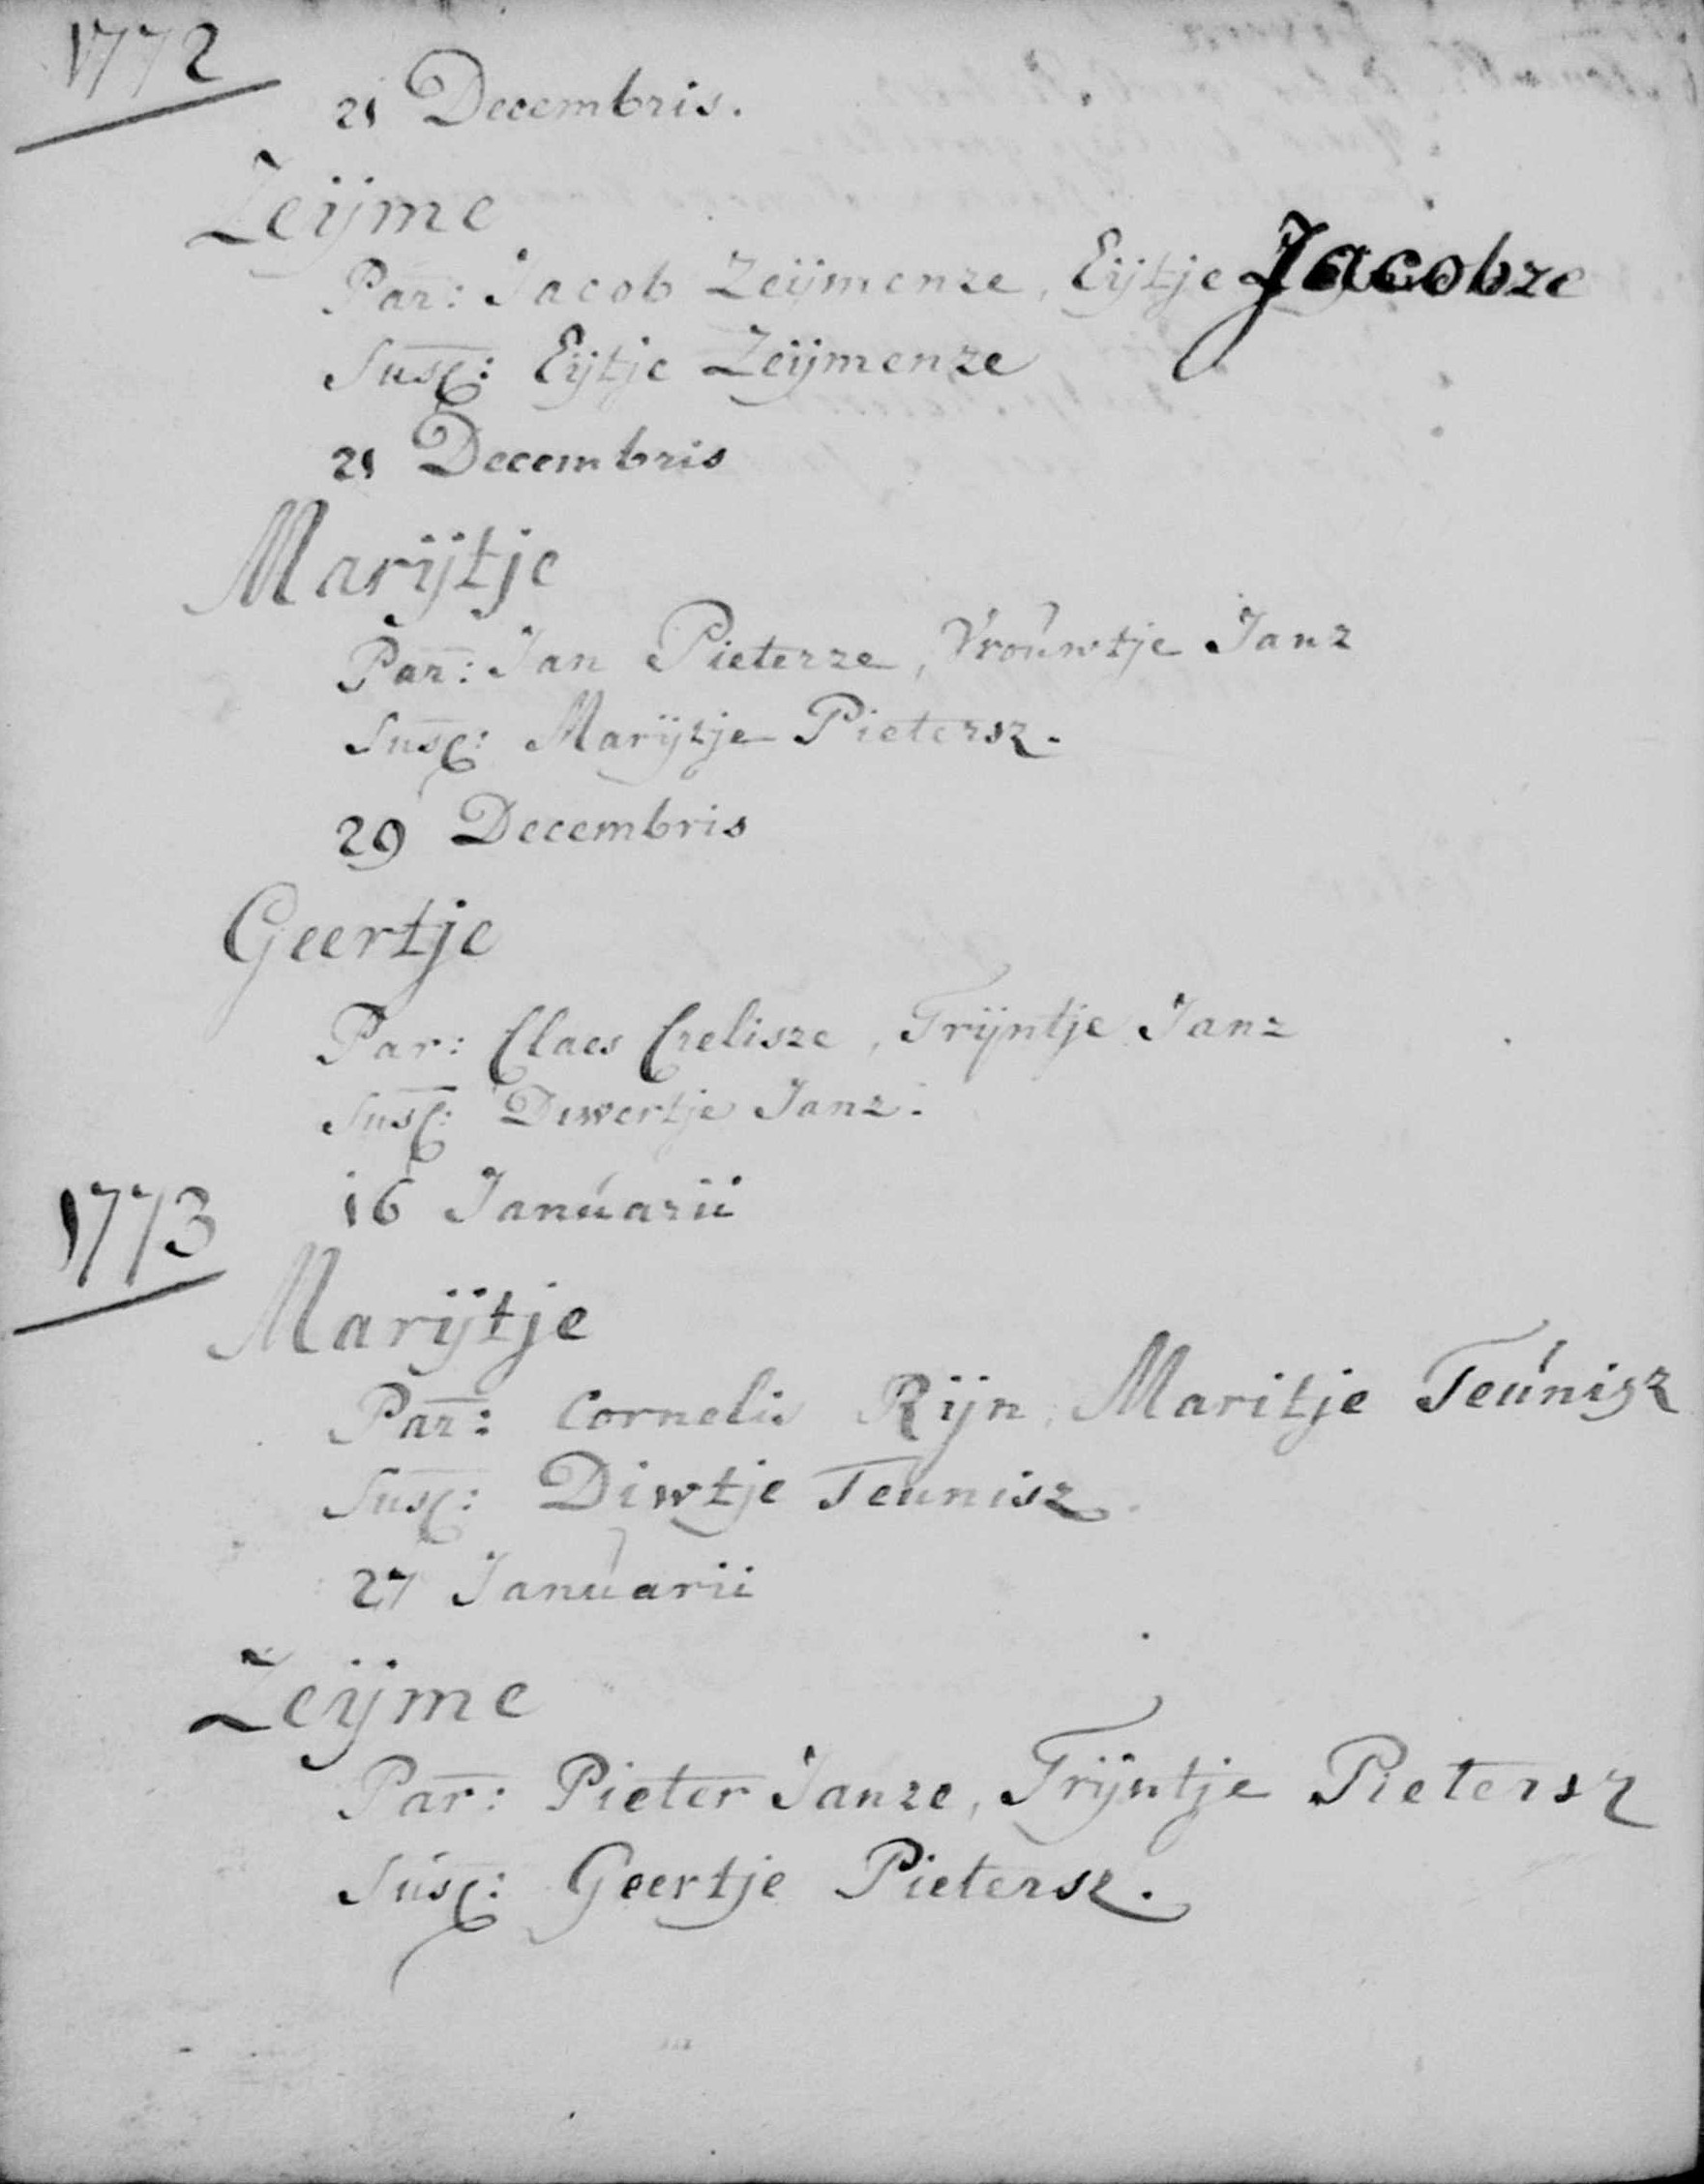 1772
21 Decembris.
Zeijme
Par: Jacob Zeijmenze, Eijtje Jacobze
Susc: Eijtje Zeijmenze
21 Decembris
Marijtje
Par: Jan Pieterze, Vrouwtje Janz
Susc: Marijtje Pietersz.
29 Decembris
Geertje
Par: Claes Crelisze, Trijntje Janz
Susc: Diwertje Janz.
1773
16 Januarii
Marijtje
Par: Cornelis Rijn, Maritje Teunisz
Susc: Diwtje Teunisz
27 Januarii
Zeijme
Par: Pieter Janze, Trijntje Pietersz
Susc: Geertje Pietersz.